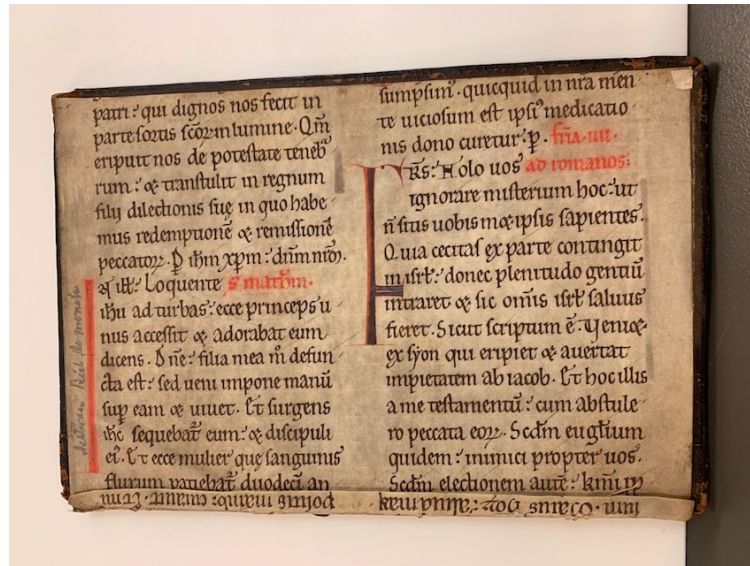 patri ⁊ qui dignos nos fecit in
parte sortis sc̄oꝝ in lumine. Qm̄
eripuit nos de potestate teneb
rum ⁊ & transtulit in regnum
filij dilectionis suę in quo habe
mus redemptionē & remissionē
peccatoꝝ. P ih̄m xp̄m ⁊ dn̄m nr̄m.
Loquente s mathm.
ih̄u ad turbas ⁊ ecce princeps u
nus accessit & adorabat eum
dicens. Dn̄e ⁊ filia mea m̊ defun
cta est ⁊ sed ueni impone manū
sup eam & uiuet. Et surgens
ih̄c sequebat̄ eum ⁊ & discipuli
ei᾽. Et ecce mulier quę sanguinis
fluxum patiebat̄ duodeci an
sumpsim᾽. quicquid in nr̄a men
te uiciosum est ipsi᾽ medicatio
nis dono curetur. p. fr̄ia. iiii.
Fr̄s ⁊ Nolo uos ad romanos.
ignorare misterium hoc ⁊ ut
n̄ sitis uobis m&ipsis sapientes.
Quia cecitas ex parte contingit
in isrl̄ ⁊ donec plenitudo gentiū
intraret & sic om̄is isrl̄ saluus
fieret. Sicut scriptum ē ⁊ Ueni&
ex syon qui eripiet & auertat
impietatem ab iacob. Et hoc illis
a me testamentū ⁊ cum abstule
ro peccata eoꝝ. Scdm̄ eugl̄ium
quidem ⁊ inimici propter uos.
Scdm̄ electionem autē ⁊ kmi